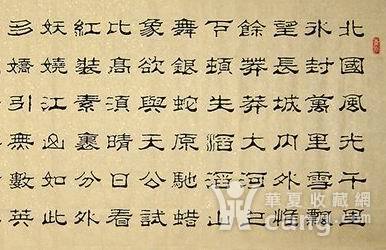 北國風光千里
冰封萬里雪飄
望長城内外惟
餘莽莽大河上
下頓失滔滔山
舞銀蛇原馳蜡
象欲與天公試
比髙須晴日看
紅裝素裹分外
妖嬈江山如此
多嬌引無數英
華夏收藏網